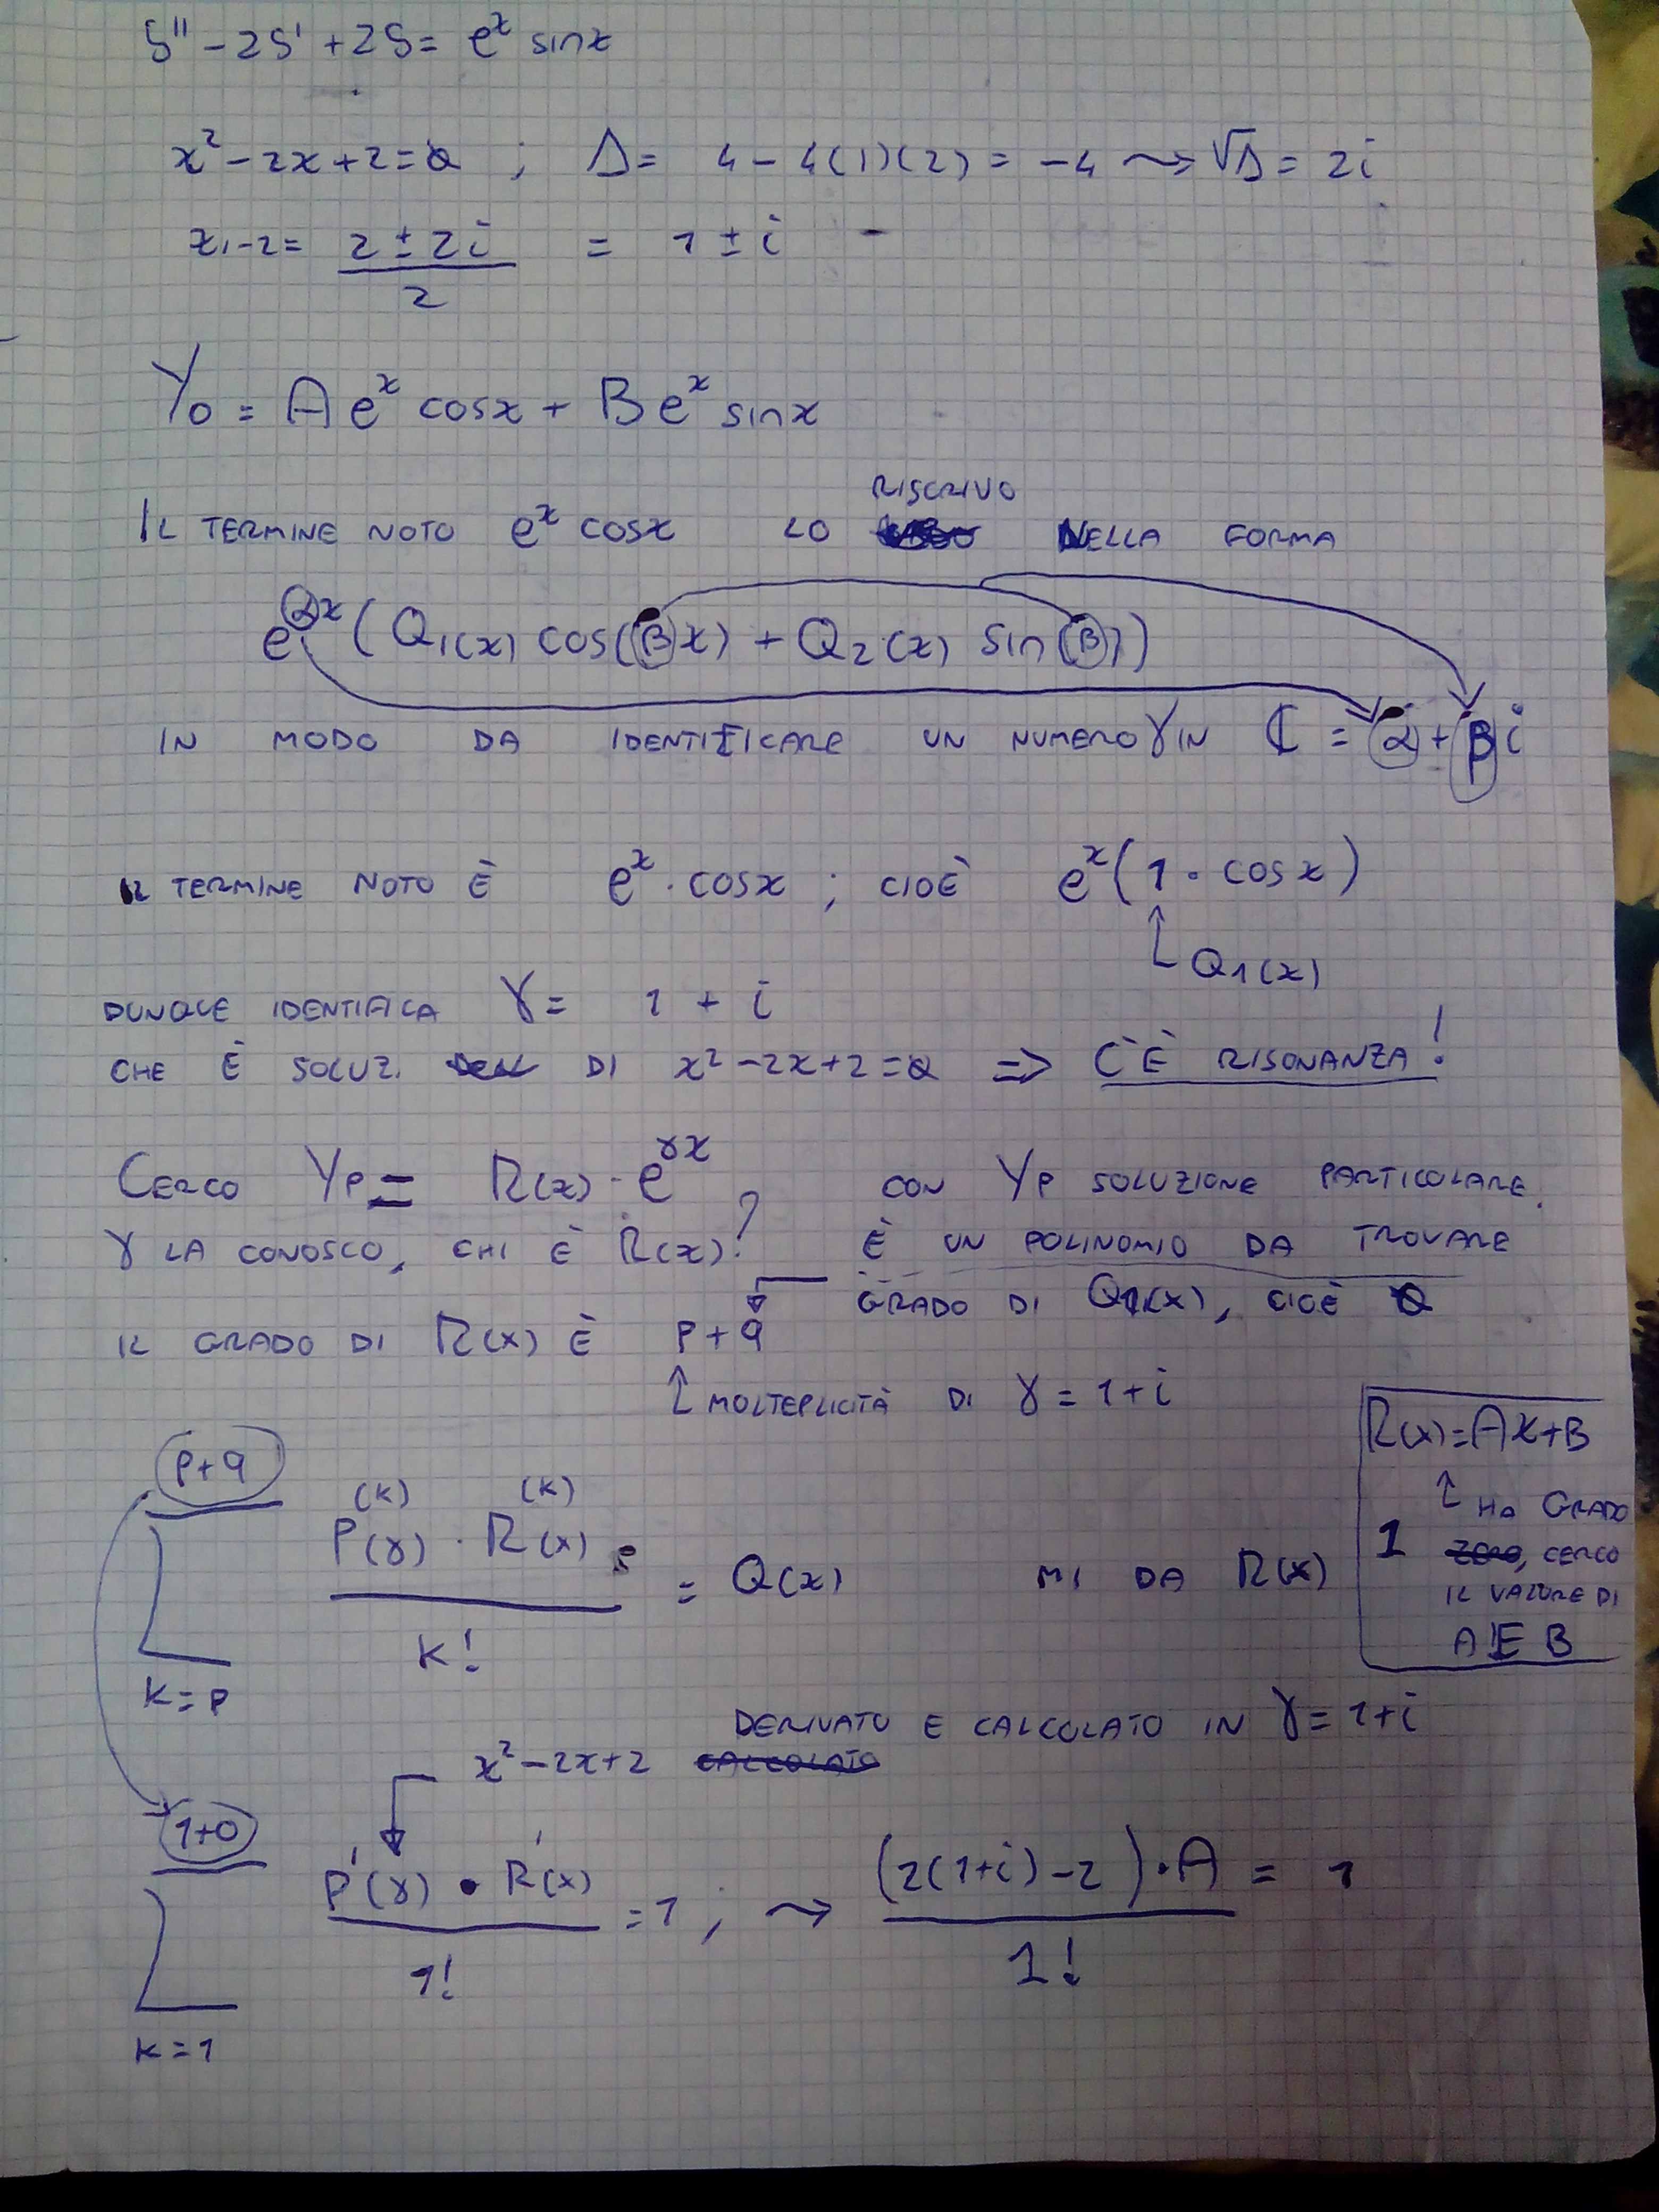 y'' - 2y' + 2y = e^x sinx
x² - 2x + 2 = 0 ; Δ = 4 - 4(1)(2) = -4 ⇝ √Δ = 2i
x₁-₂ = (2 ± 2i)/2 = 1 ± i -
Y₀ = A e^x cosx + B e^x sinx
RISCRIVO
IL TERMINE NOTO e^x cosx LO NELLA FORMA
e^(αx) (Q₁(x) cos(βx) + Q₂(x) sin(β))
IN MODO DA IDENTIFICARE UN NUMERO γ IN ℂ = α + βi
IL TERMINE NOTO È e^x · cosx ; CIOÈ e^x (1 · cosx)
↑ Q₁(x)
DUNQUE IDENTIFICA γ = 1 + i
CHE È SOLUZ. DI x² - 2x + 2 = 0 => C'È RISONANZA!
CERCO Yp = R(x) · e^(γx) CON Yp SOLUZIONE PARTICOLARE.
γ LA CONOSCO, CHI È R(x)? È UN POLINOMIO DA TROVARE
GRADO DI Q1(x), CIOÈ 0
IL GRADO DI R(x) È P + q
↑ MOLTEPLICITÀ DI γ = 1 + i
R(x) = Ax + B
↑ HA GRADO
1 ZERO, CERCO
IL VALORE DI
A E B
P + q
(k) (k)
P(γ) · R(x)
= Q(x) MI DA R(x)
k!
k = P
DERIVATO E CALCOLATO IN γ = 1 + i
x² - 2x + 2 CALCOLATO
1+0
P'(γ) · R'(x) = 1 ; ⇝ (2(1+i) - 2) · A = 1
1! 1!
k = 1